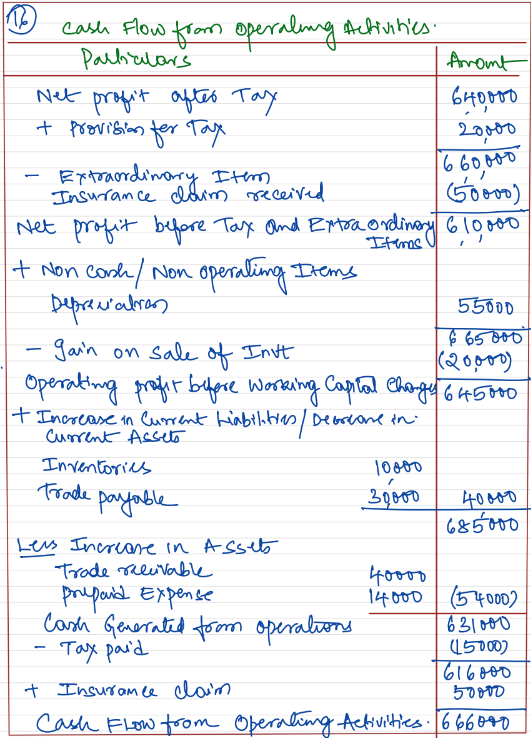 16
Cash Flow from Operating Activities.
Particulars Amount
Net profit after Tax 640,000
+ Provision for Tax 20,000
660,000
- Extraordinary Item
Insurance claim received (50000)
Net profit before Tax and Extraordinary 610,000
Items
+ Non cash/Non operating Items
Depreciation 55000
665000
- Gain on sale of Invt (20,000)
Operating profit before Working Capital Changes 645000
+ Increase in Current Liabilities/Decrease in
Current Assets
Inventories 10000
Trade payable 30,000 40000
685000
Less Increase in Assets
Trade receivable 40000
prepaid Expense 14000 (54000)
Cash Generated from operations 631000
- Tax paid (15000)
616000
+ Insurance claim 50000
Cash Flow from Operating Activities. 666000